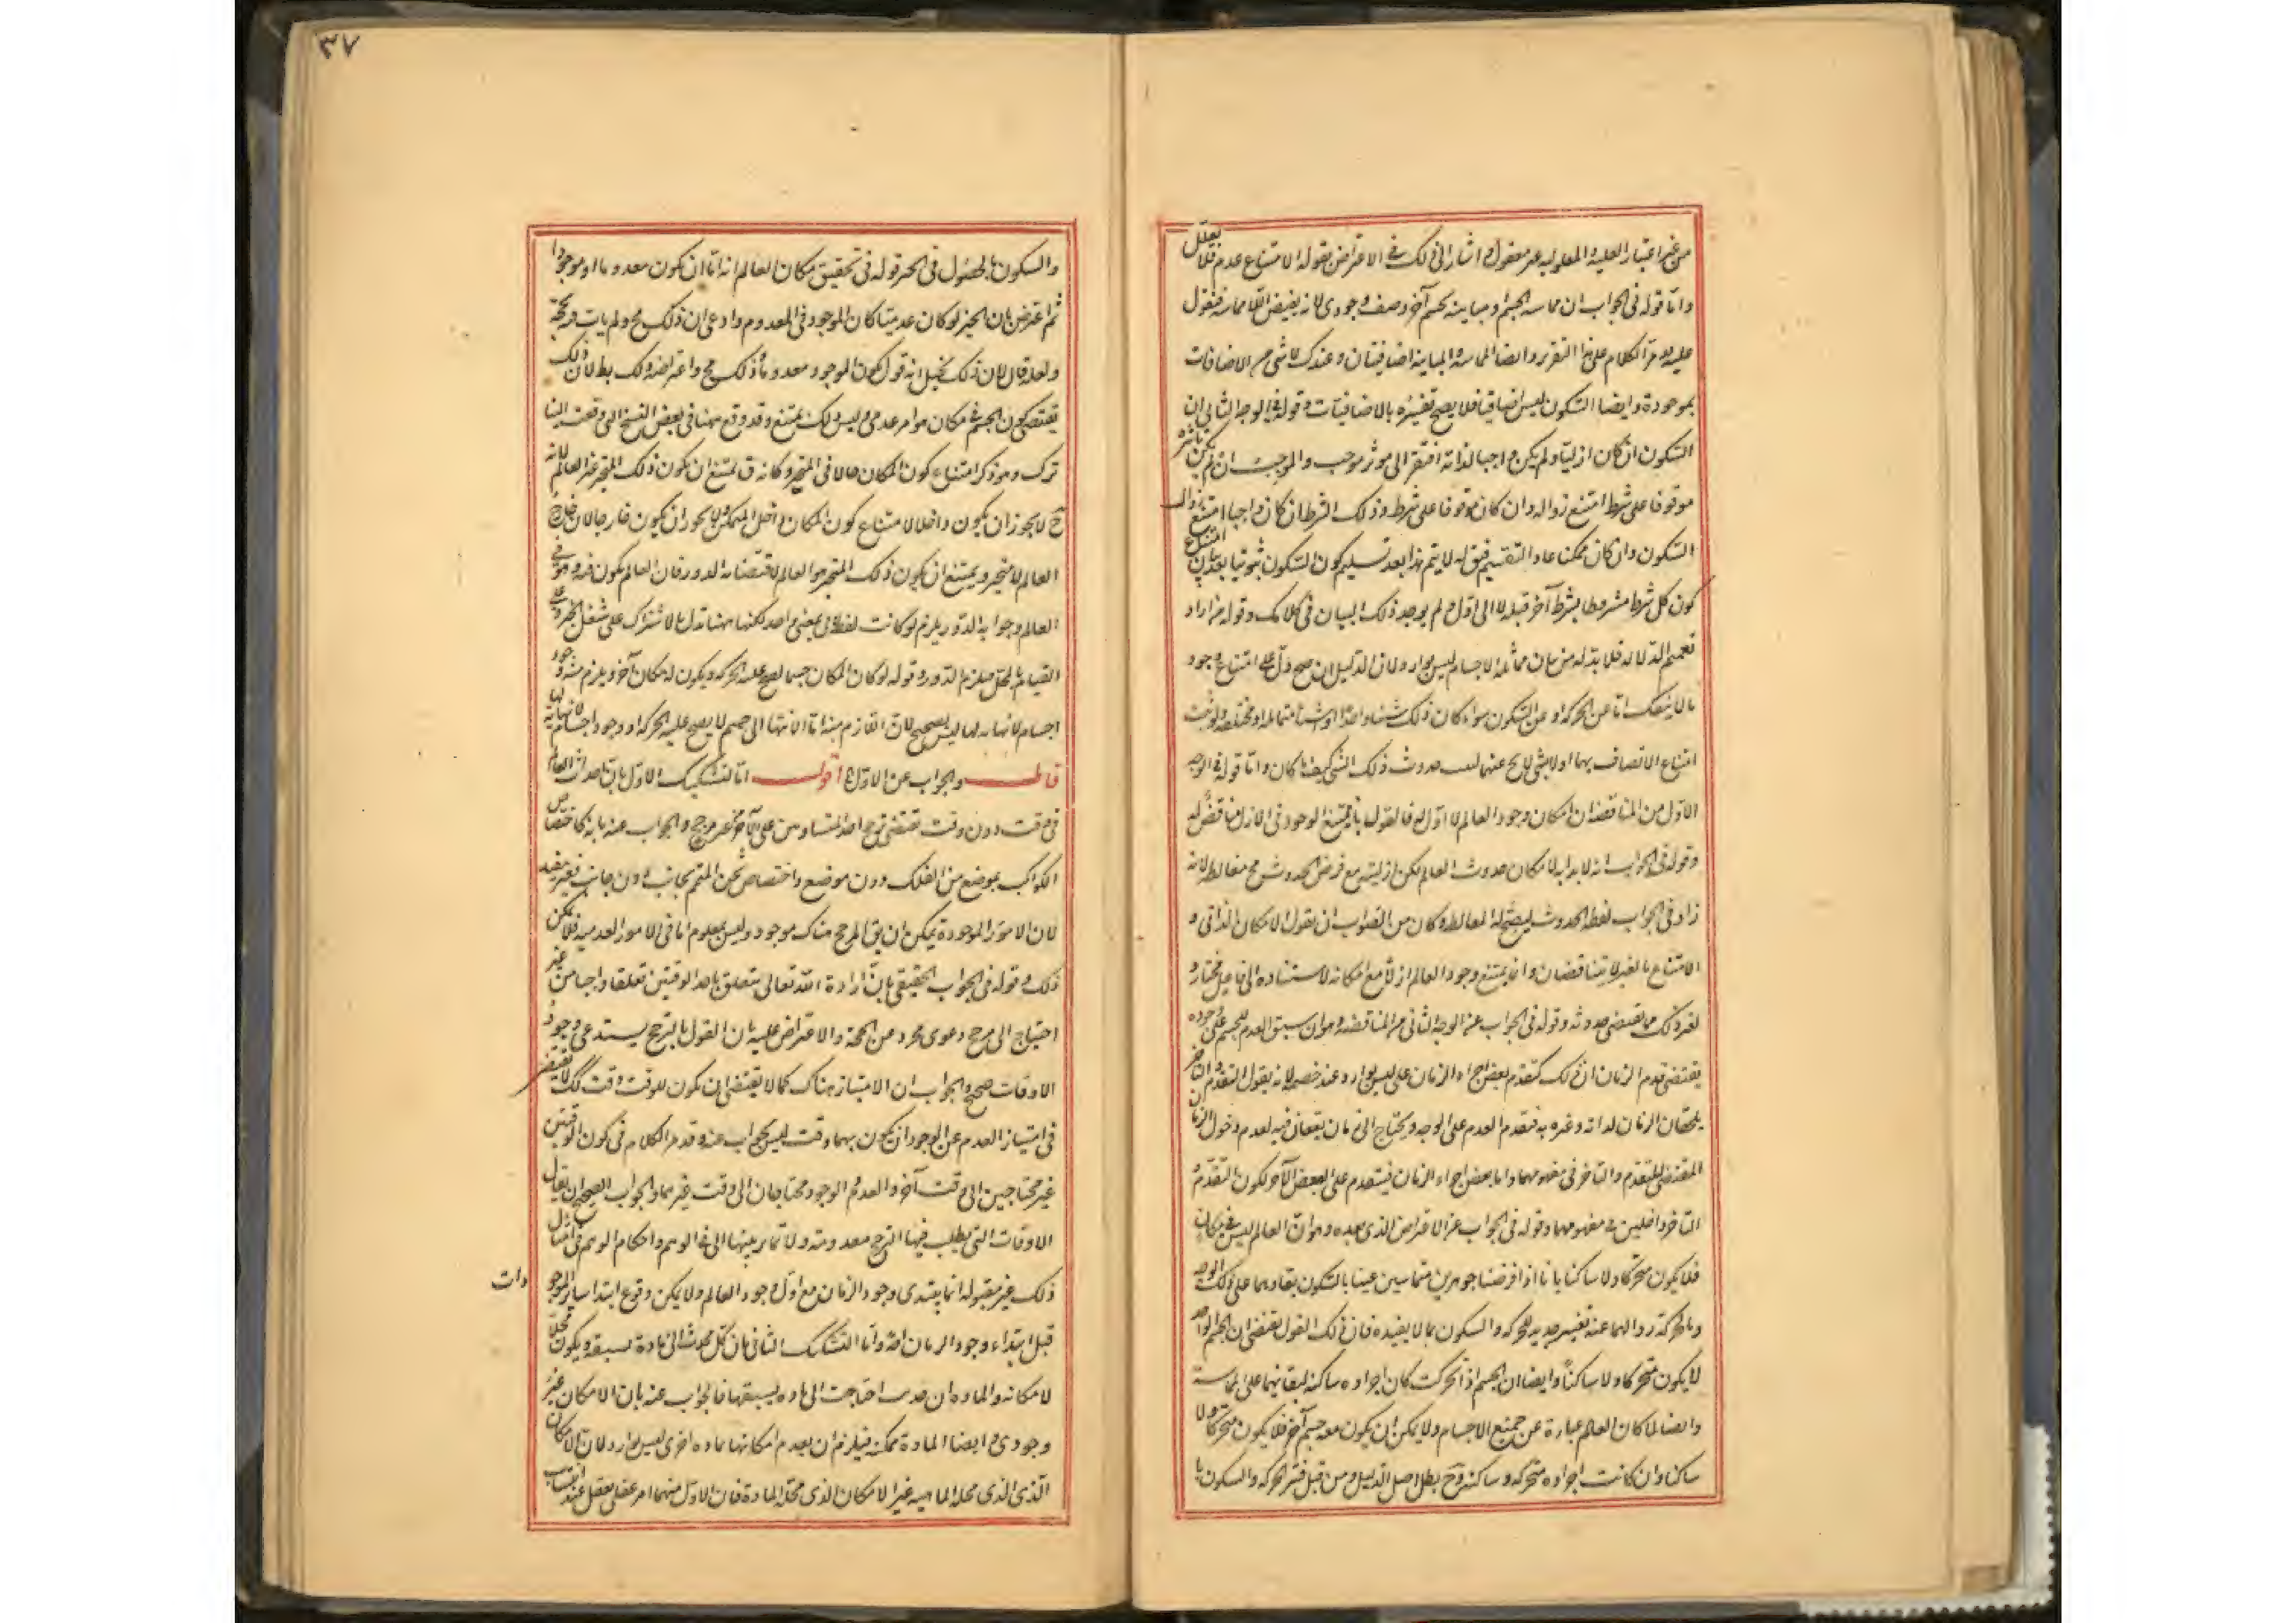 من غير اعتبار العلية والمعلولية غير معقول واشار الى ذلك في الاعتراض بقوله الامتناع عدم فلا يعلل
واما قوله في الجواب ان مماسة الجسم او مباينته لجسم آخر وصف وجودى لانه يقيض اللا مماسة فنقول
عليه مر الكلام على هذا التقرير وايضا المماسة والمباينة اضافيتان وعندك لا شى من الاضافات
بموجودة وايضا السكون ليس اضافيا فلا يصح تفسيره بالاضافيات وقوله في الوجه الثانى ان
السكون ان كان ازليا ولم يكن واجبا لذاته افتقر الى موثر موجب والموجب ان لم يكن تاثيره
موقوفا على شرط امتنع زواله وان كان موقوفا على شرط وذلك الشرط ان كان واجبا امتنع زوال
السكون وان كان ممكنا عاد التقسيم فيه له لا يتم هذا بعد تسليم كون السكون ثبوتيا بعد بيان امتناع
كون كل شرط مشروطا بشرط آخر قبله لا الى اول ولم يوجد ذلك البيان في كلامك وقوله من اراد
تعميم الدلالة فلا بد له من بيان مماثلة الاجسام ليس بوارد لان الدليل ان صح دل على امتناع وجود
ما لا ينفك اما عن الحركة او عن السكون سواء كان ذلك شيئا واحدا او اشياء متماثلة او مختلفة ولو ثبت
امتناع الاتصاف بهما او لا بشى لا يخ عنهما لثبت حدوث ذلك الشى كيف ما كان واما قوله في الوجه
الاول من المناقضة ان امكان وجود العالم لا اول له فالقول بانه يمتنع الوجود في الازل مناقض له
وقوله في الجواب انه لا بداية لامكان حدوث العالم لكن ازليته مع فرض الحدوث مح مغالطة لانه
زاد في الجواب لفظ الحدوث ليصح له المغالطة وكان من الصواب ان يقول الامكان الذاتى و
الامتناع بالغير لا يتناقضان وانما يمتنع وجود العالم ازلا مع امكانه لاستناده الى فاعل مختار و
لغير ذلك مما يقتضى حدوثه وقوله في الجواب عن الوجه الثانى من المناقضة وهو ان سبق العدم للجسم على وجوده
يقتضى قدم الزمان ان ذلك كتقدم بعض اجزاء الزمان على ليس بوارد عند خصمه لانه يقول التقدم والتاخر
يلحقان الزمان لذاته وغيره به فتقدم العدم على الوجود يحتاج الى زمان يقعان فيه لعدم دخول الزمان
المقتضى للتقدم والتاخر في مفهومهما واما بعض اجزاء الزمان فيتقدم على البعض الآخر لكون التقدم و
التاخر داخلين في مفهومهما وقوله في الجواب عن الاعتراض الذى بعده وهو ان العالم ليس في مكان
فلا يكون متحركا ولا ساكنا بانا اذا فرضنا جوهرين متماسين عنينا بالسكون بقاءهما على ذلك الوجه
وبالحركة زوالهما عنه تفسير جديد للحركة والسكون بما لا يفيده فان ذلك القول يقتضى ان الجسم الواحد
لا يكون متحركا ولا ساكنا وايضا ان الجسم اذا تحركت كان اجزاءه ساكنة لبقائهما على المماسة
وايضا لما كان العالم عبارة عن جميع الاجسام ولا يمكن ان يكون معه جسم آخر فلا يكون متحركا ولا
ساكنا وان كانت اجزاءه متحركة وساكنة وح بطل اصل الدليل ومن قبل فسر الحركة والسكون با
٣٧
والسكون بالحصول في الحيز قوله في تحقيق مكان العالم انه اما ان يكون معدوما او موجودا
ثم اعترض بان الحيز لو كان عدميا كان الموجود في المعدوم وادعى ان ذلك مح ولم يات فيه بحجة
ولعله قال لان ذلك يخيل انه قول بكون الموجود معدوما وذلك مح واعتراضه ذلك بطلان ذلك
يقتضى كون الجسم في مكان هو امر عدمى وليس ذلك بممتنع وقد وقع ههنا في بعض النسخ التى وقعت الينا
ترك وهو ذكر امتناع كون المكان حالا في المتحيز وكانه ق يمتنع ان يكون ذلك المتحيز غير العالم لانه
ح لا يجوز ان يكون داخلا لامتناع كون المكان داخل المتمكن ولا يجوز ان يكون خارجا لان خارج
العالم لا متحيز ويمتنع ان يكون ذلك المتحيز هو العالم لاقتضائه الدور فان العالم يكون فيه وهو في
العالم وجوابه الدور يلزم لو كانت لفظة في بمعنى واحد لكنها ههنا تدل بالاشتراك على شغل الحيز وعلى
القيام بالمحل فلا يلزم الدور وقوله لو كان المكان جسما لصح عليه الحركة ويكون له مكان آخر ويلزم منه وجود
اجسام لا نهاية لها ليس بصحيح لان اللازم منه اما الانتهاء الى جسم لا يصح عليه الحركة او وجود اجسام لا نهاية لها
قال والجواب عن الاول الخ اقول اما التشكيك الاول بان احداث العالم
في وقت دون وقت يقتضى ترجح احد المتساويين على الآخر من غير مرجح والجواب عنه بانه كاختصاص
الكواكب بموضع من الفلك دون موضع واختصاص ثخن المتمم بجانب دون جانب فغير مفيد
لان الامور الموجودة يمكن ان يق المرجح هناك موجود وليس بمعلوم اما في الامور العدمية فلا يمكن
ذلك وقوله في الجواب الحقيقى بان ارادة الله تعالى يتعلق باحد الوقتين تعلقا واجبا من غير
احتياج الى مرجح دعوى مجرد عن الحجة والاعتراض عليه بان القول بالترجيح يستدعى وجود
الاوقات صحيح والجواب ان الامتياز هناك كما لا يقتضى ان يكون للوقت وقت كك لا يفتقر
في امتياز العدم عن الوجود ان يكون بهما وقت ليس بجواب عنه وقد مر الكلام في كون الوقتين
غير محتاجين الى وقت آخر والعدم والوجود محتاجان الى وقت غيرهما والجواب الصحيح ان يقال
الاوقات التى يطلب فيها الترجيح معدومة ولا تمايز بينها الا في الوهم واحكام الوهم في امثال
ذلك غير مقبولة انما يبتدى وجود الزمان مع اول وجود العالم ولا يمكن وقوع ابتداء ساير الموجودات
قبل ابتداء وجود الزمان اصلا واما التشكيك الثانى بان كل محدث الى مادة يسبقه ويكون محلا
لامكانه والمادة ان حدثت احتاجت الى مادة يسبقها فالجواب عنه بان الامكان غير
وجودى وايضا المادة ممكنة فيلزم ان يعدم امكانها بمادة اخرى ليس بوارد لان الامكان
الذى الذى محله الماهية غير الامكان الذى محله المادة فان الاول منهما امر عقلى يعقل عند انتساب